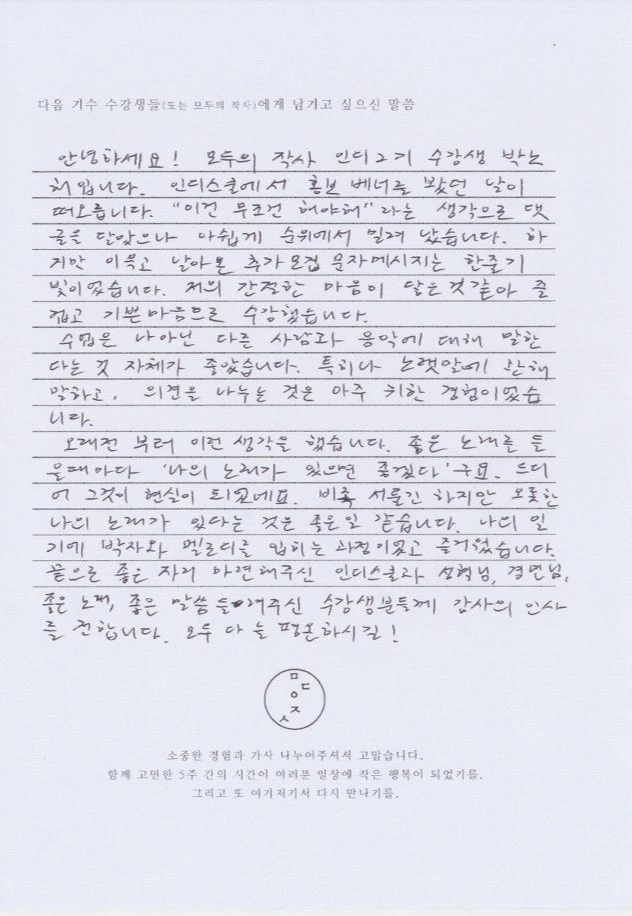 다음 기수 수강생들(또는 모두의 작사)에게 남기고 싶으신 말씀
안녕하세요! 모두의 작사 인디2기 수강생 박노
해입니다. 인디스쿨에서 홍보 베너를 봤던 날이
떠오릅니다. "이건 무조건 해야해"라는 생각으로 댓
글을 단았으나 아쉽게 순위에서 밀려 났습니다. 하
지만 이윽고 날아온 추가모집 문자메시지는 한줄기
빛이었습니다. 저의 간절한 마음이 닿은것 같아 즐
겁고 기쁜마음으로 수강했습니다.
수업은 나아닌 다른 사람과 음악에 대해 말한
다는 것 자체가 좋았습니다. 특히나 노랫말에 관해
말하고, 의견을 나누는 것은 아주 귀한 경험이었습
니다.
오래전 부터 이런 생각을 했습니다. 좋은 노래를 들
을때마다 '나의 노래가 있으면 좋겠다' 구요. 드디
어 그것이 현실이 되었네요. 비록 서툴긴 하지만 오롯한
나의 노래가 있다는 것은 좋은일 같습니다. 나의 일
기에 박자와 멜로디를 입히는 과정이었고 즐거웠습니다.
끝으로 좋은 자리 마련해주신 인디스쿨과 님, 님,
좋은 노래, 좋은 말씀 들려주신 수강생분들께 감사의 인사
를 전합니다. 모두 다 늘 평온하시길!
ㅁ
ㄷ
ㅇ
ㅈ
ㅅ
소중한 경험과 가사 나누어주셔서 고맙습니다.
함께 고민한 5주 간의 시간이 여러분 일상에 작은 행복이 되었기를.
그리고 또 여기저기서 다시 만나기를.